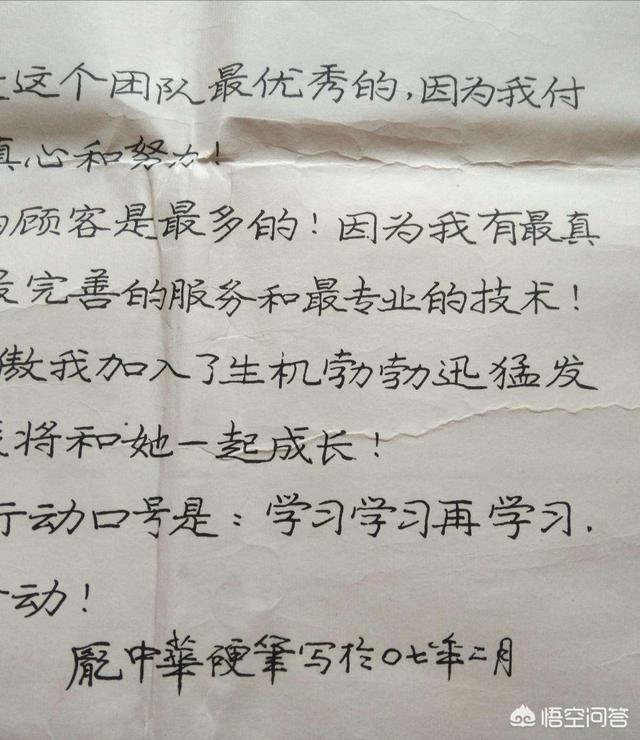 这个团队最优秀的,因为我付
真心和努力!
的顾客是最多的!因为我有最真
最完善的服务和最专业的技术!
傲我加入了生机勃勃迅猛发
将和她一起成长!
行动口号是:学习学习再学习.
动!
龐中華硬筆写於〇七年二月
悟空问答